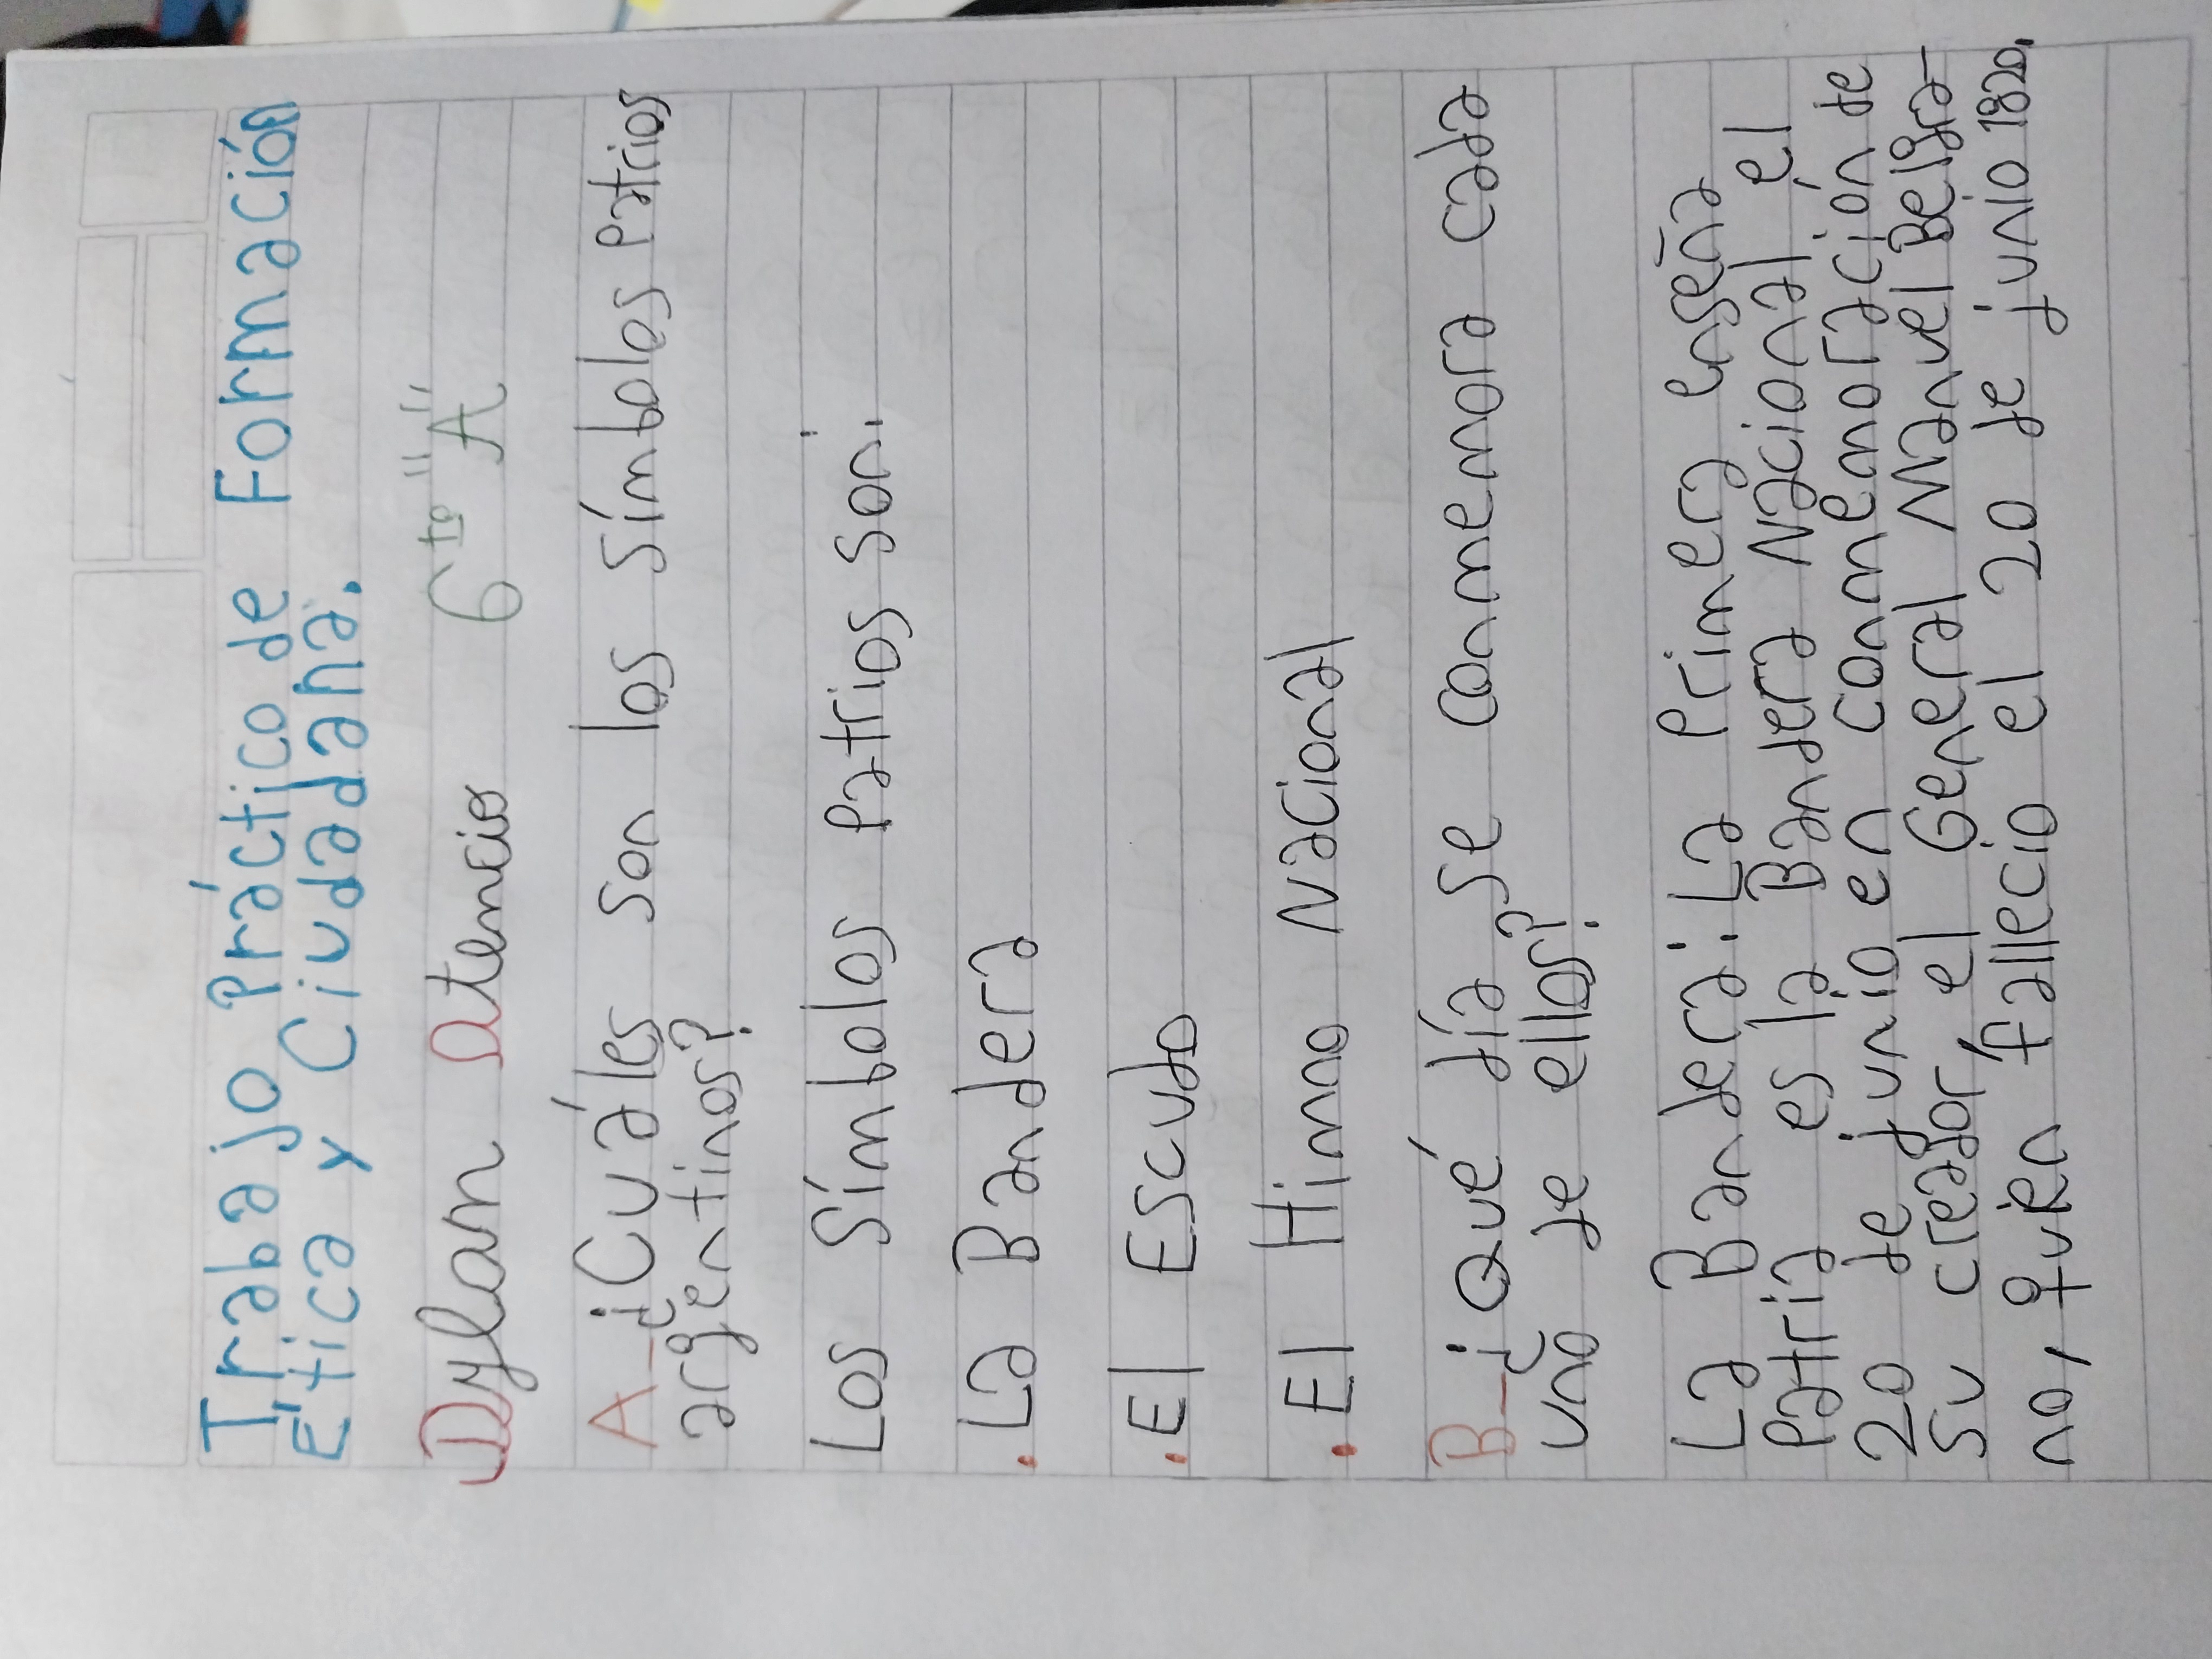 Trabajo Práctico de Formación
Etica y Ciudadana.
Dylan Atencio 6to "A"
A-¿Cuáles son los Símbolos Patrios
argentinos?
Los Símbolos Patrios son:
. La Bandera
. El Escudo
. El Himno Nacional
B-¿Qué día se conmemora cada
uno de ellos?
La Bandera: La Primera enseña
Patria es la Bandera Nacional el
20 de junio en conmemoración de
su creador, el General Manuel Belgra-
no, quien fallecio el 20 de junio 1820.